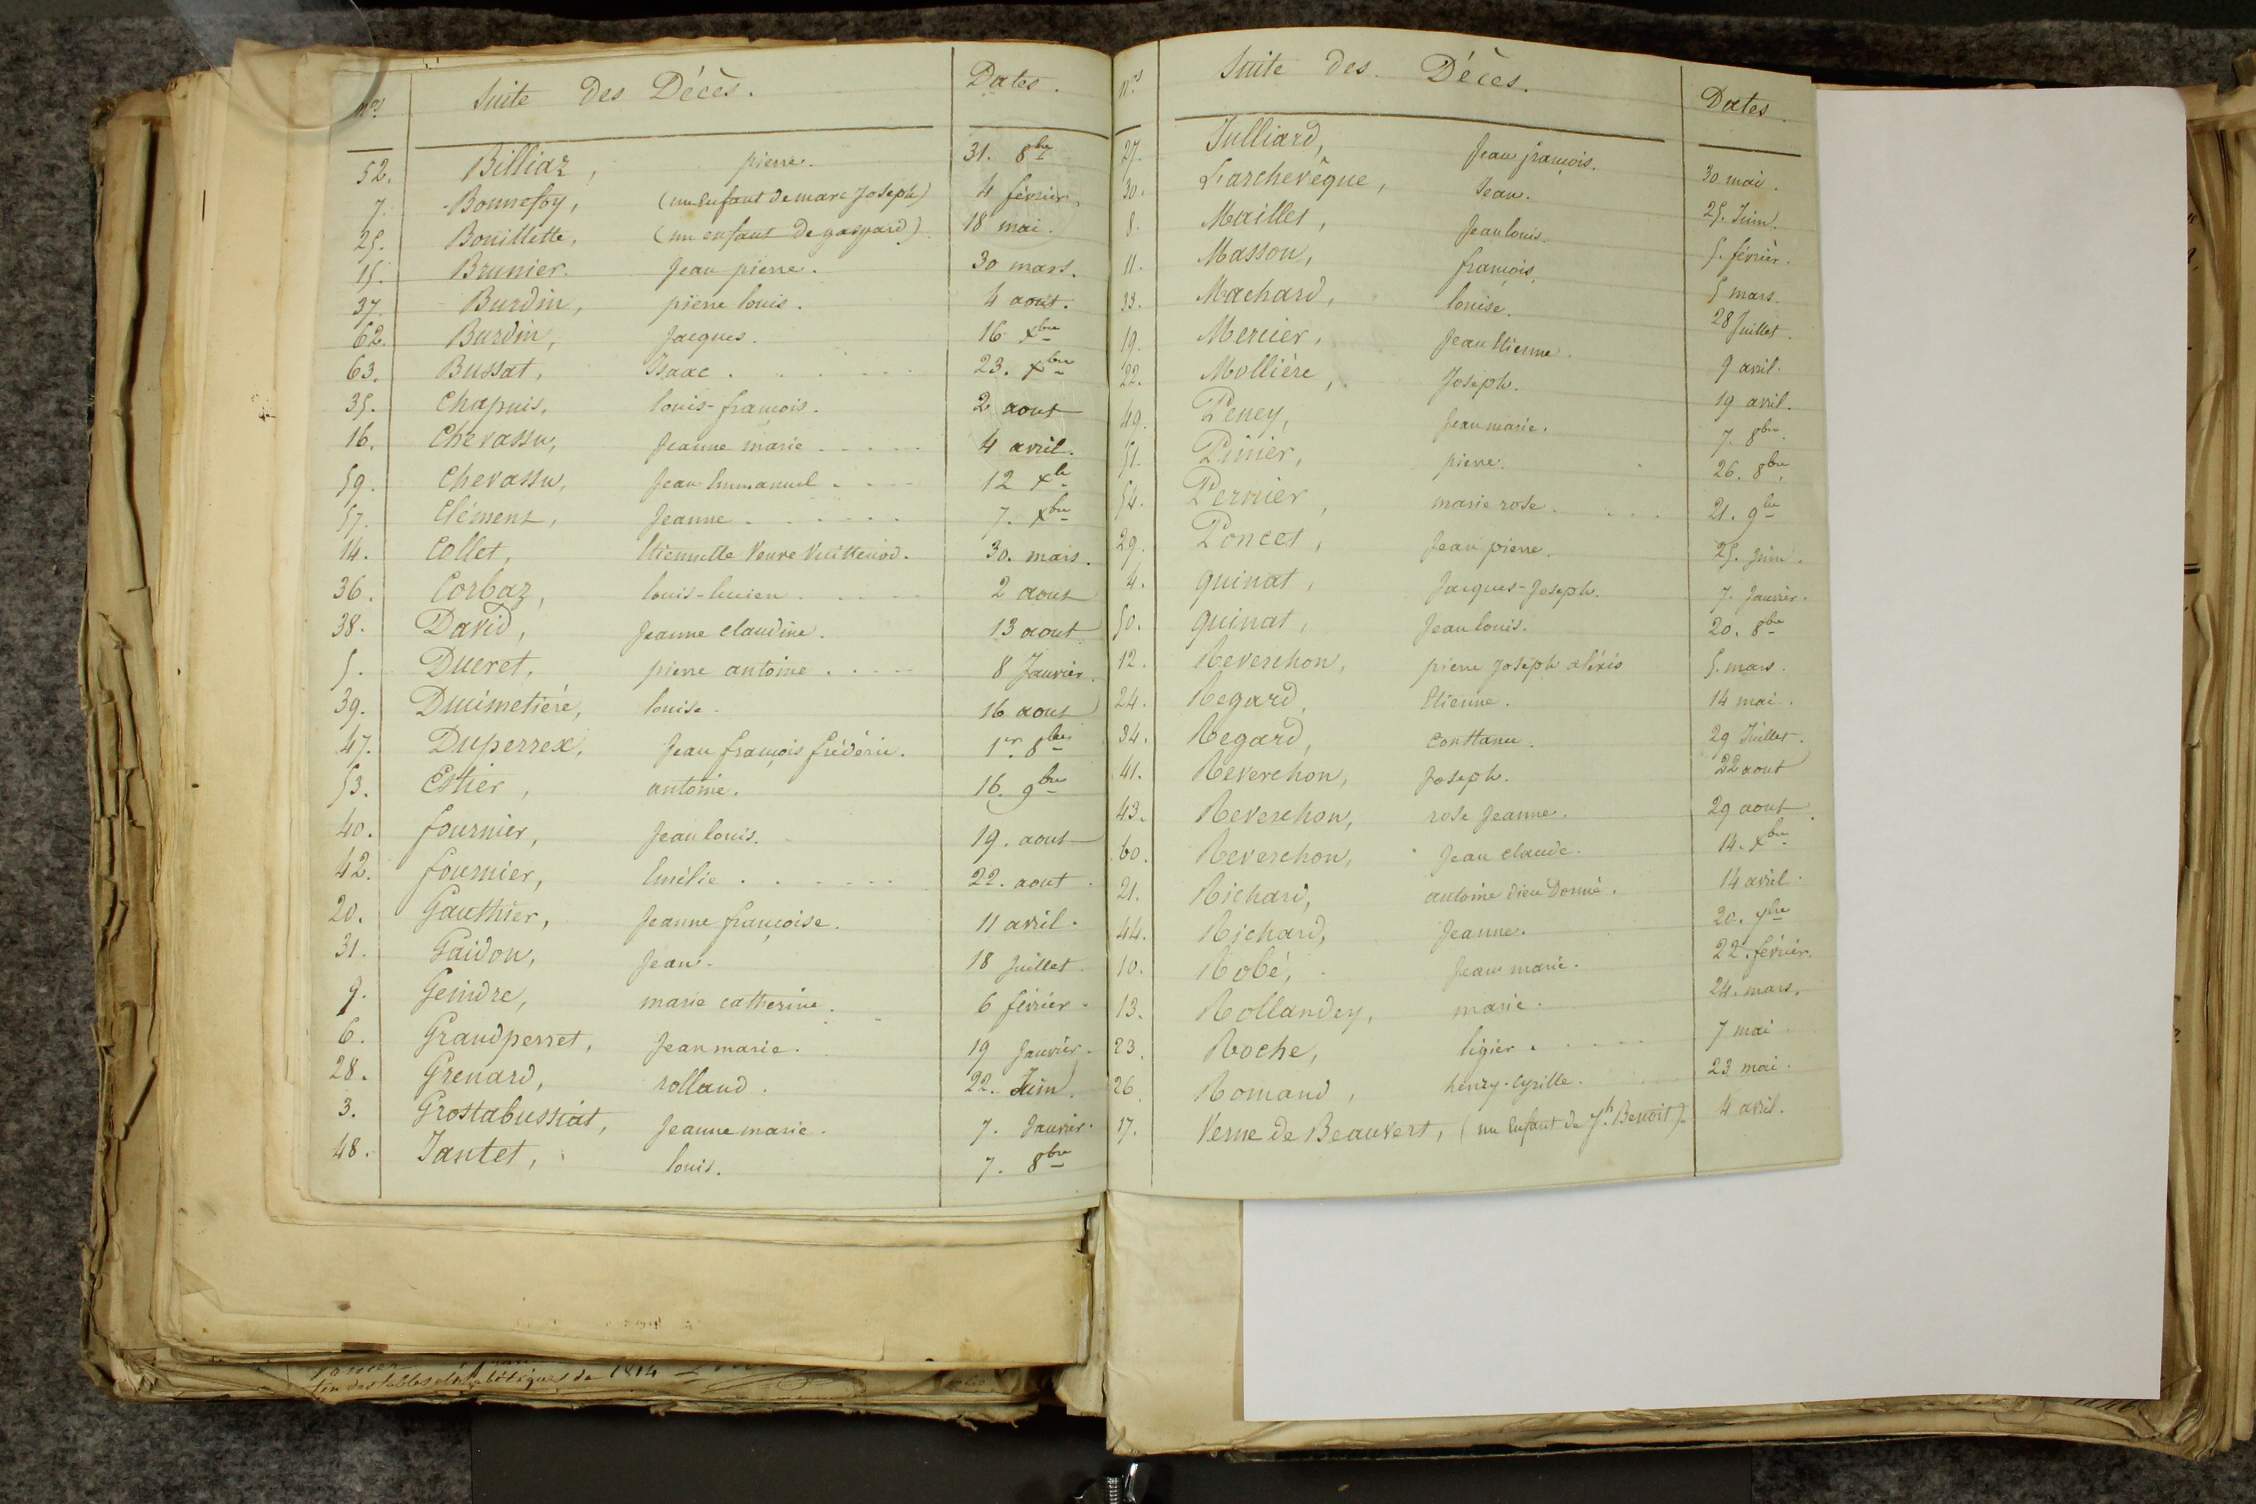 nos Suite des Décès. Dates.
52. Billiaz, pierre. 31. 8bre
7. Bonnefoy, (un Enfant de marc Joseph) 4 février,
25. Bouillette, (un enfant de gaspard) 18 mai.
15. Brunier. Jean pierre. 30 mars.
37. Burdin, pierre louis. 4 aout.
62. Burdin, Jacques. 16 Xbre
63. Bussat, Isaac. 23. Xbre
35. Chapuis, louis-françois. 2 aout
16. Chevassu, Jeanne marie 4 avril.
59. Chevassu, Jean Emmanuel 12 Xbre
57. Clément, Jeanne 7. Xbre
14. Collet, Etiennette Veuve Vuittenod. 30. mars.
36. Corbaz, louis-lucien 2 aout
38. David, Jeanne claudine. 13 aout
5. Ducret, pierre antoine 8 Janvier.
39. Ducimetiére, louise. 16 aout
47. Duperrex, Jean françois frédéric. 1er 8bre
53. Estier, antoine. 16. 9bre
40. fournier, Jean louis. 19. aout
42. fournier, Emélie 22. aout
20. Gauthier, Jeanne françoise. 11 avril.
31. Gaidon, Jean. 18 Juillet.
9. Geindre, marie catherine. 6 février.
6. Grandperret, Jean marie. 19 Janvier.
28. Grenard, rolland. 22. Juin.
3. Grostabussiat, Jeanne marie. 7. Janvier.
48. Jantet, louis. 7. 8bre
nos Suite des Décès. Dates.
27. Julliard, Jean françois. 30 mai.
30. Larchevêque, Jean. 25. Juin.
8. Maillet, Jean louis. 5. février.
11. Masson, françois 5 mars.
33. Machard, louise. 28 Juillet.
19. Mercier, Jean Etienne. 9 avril.
22. Mollière, Joseph. 19 avril.
49. Peney, Jean marie. 7. 8bre
51. Pinier, pierre. 26. 8bre
54. Pernier, marie rose. 21. 9bre
29. Poncet, Jean pierre. 25. Juin.
4. quinat, Jacques-Joseph. 7. Janvier.
50. quinat, Jean louis. 20. 8bre
12. Reverchon, pierre Joseph aléxis 5. mars.
24. Regard, Etienne. 14 mai.
34. Regard, Constance. 29 Juillet.
41. Reverchon, Joseph. 22 aout
43. Reverchon, rose Jeanne. 29 aout.
60. Reverchon, Jean claude. 14. Xbre
21. Richard, antoine dieu Donné. 14 avril.
44. Richard, Jeanne. 20. 7bre
10. Robé, Jean marie. 22. février.
13. Rollandey, marie. 24. mars.
23. Roche, ligier. 7 mai
26. Romand, henry-cyrille. 23 mai.
17. Verne de Beauvert, (un Enfant de Jh. Benoit). 4 avril.
fin des tables alphabétiques de 1814